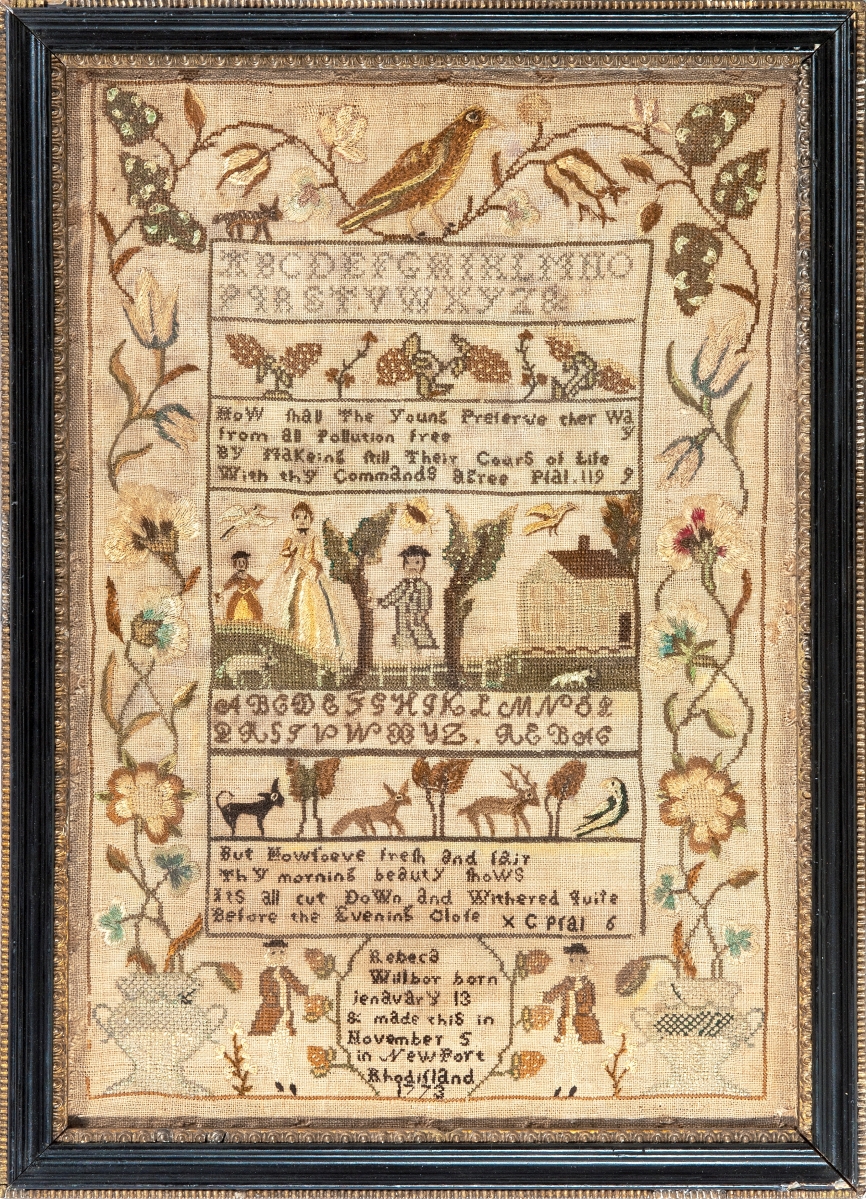 ABCDEFGHIKLMNO
PQRSTVWXYZ&
How ſhall The Young Preſerve ther Way
from all Pollution free
By Makeing ſtill Their Cours of Life
With thy Commands agree Pſal.119 9
ABCDEFGHIKLMNOP
QRSTVUWXYZ. REBAC
But Howſoeve freſh and fair
Thy morning beauty ſhows
Its all cut Down and Withered Quite
Before the Evening Cloſe X C Pſal 6
Rebeca
Wilbor born
jenavary 13
& made this in
November 5
in NewPort
Rhodiſland
1773